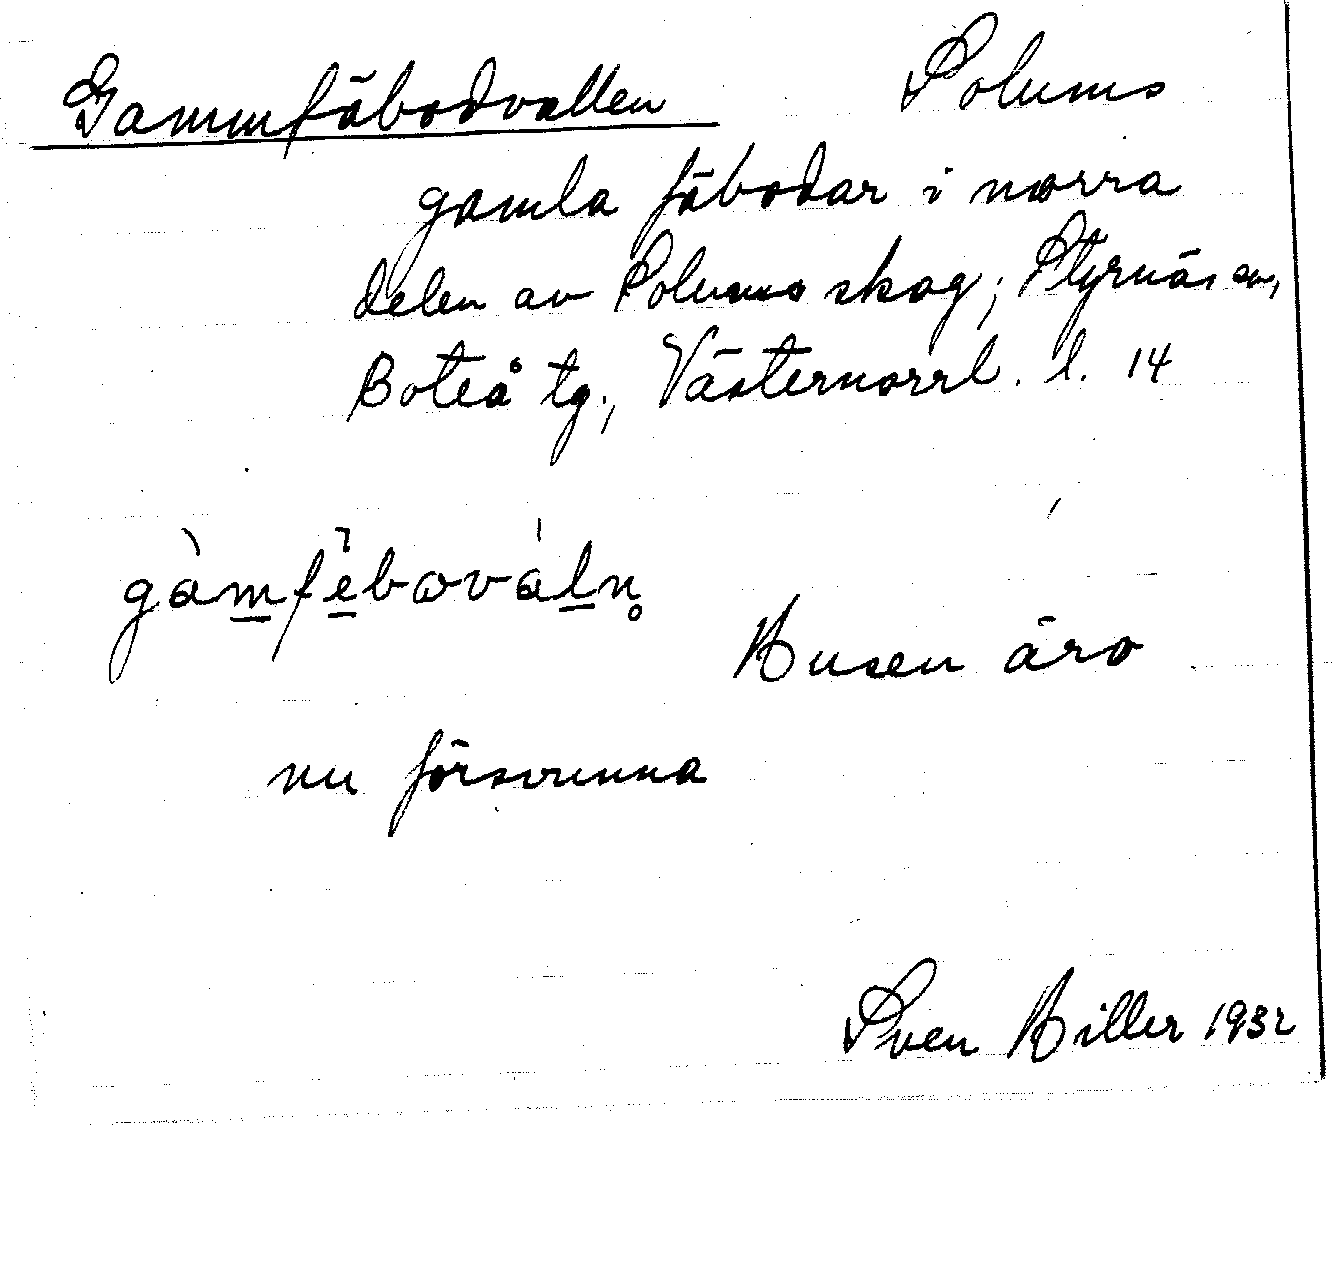 Gammfäbodvallen Solums
gamla fäbodar i norra
delen av Solums skog; Styrnäs sn,
Boteå tg., Västernorrl. l. 14
gàmfèbovàln̥
Husen äro
nu försvunna
Sven Hiller 1932